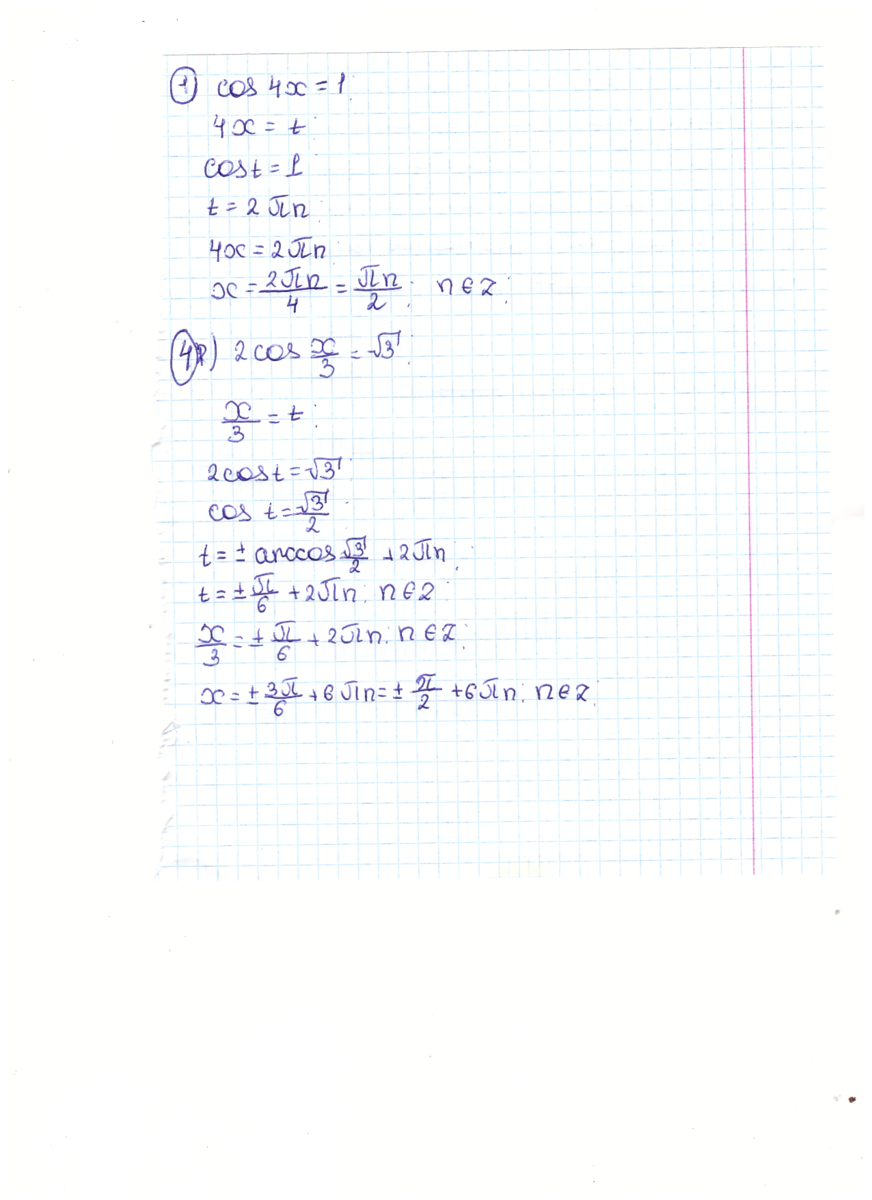 1) cos 4x = 1
4x = t
cost = 1
t = 2πn
4x = 2πn
x = 2πn/4 = πn/2; n ∈ Z;
4) 2cos x/3 = √3;
x/3 = t;
2cost = √3;
cos t = √3/2
t = ± arccos √3/2 + 2πn;
t = ± π/6 + 2πn; n ∈ Z;
x/3 = ± π/6 + 2πn; n ∈ Z;
x = ± 3π/6 + 6πn = ± π/2 + 6πn; n ∈ Z;